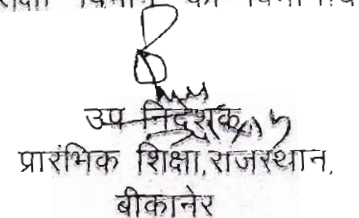 उप निदेशक
प्रारंभिक शिक्षा,राजस्थान,
बीकानेर